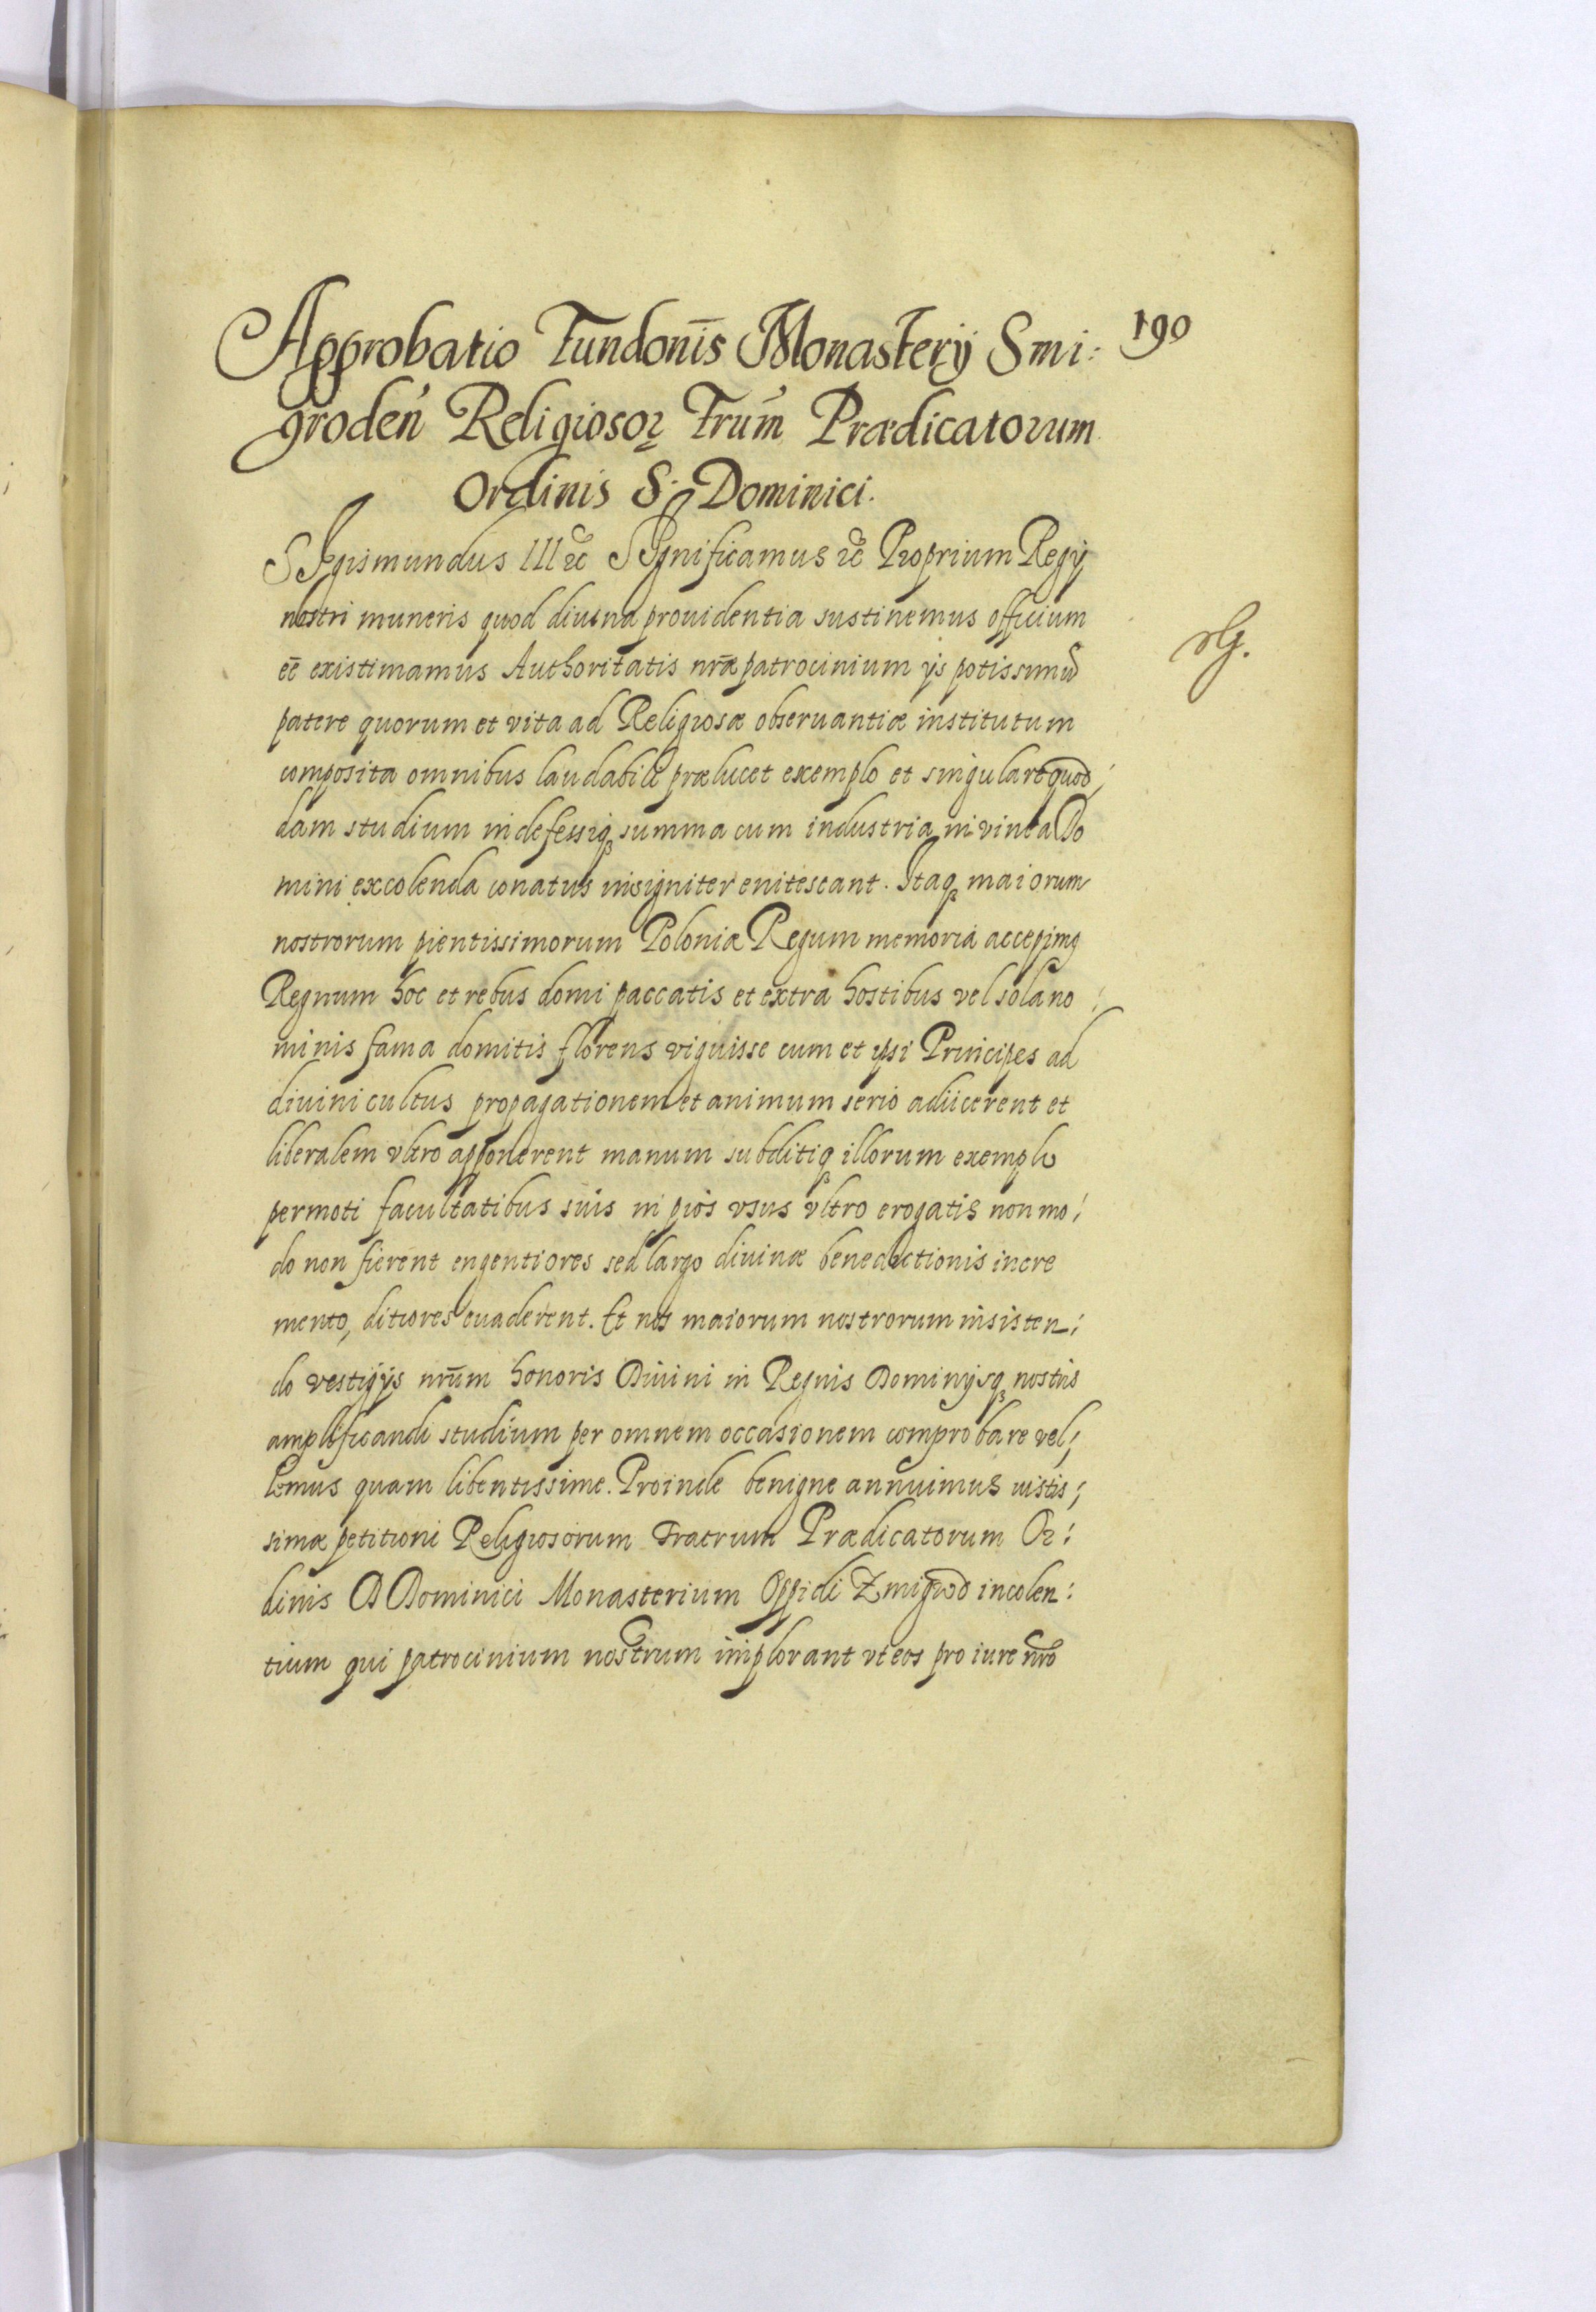 190
Approbatio Fundonīs Monasterÿ Smi:
groden̄ Religiosoꝝ Frūm Prædicatorum
Ordinis S. Dominici.
SIgismundus III ꝛc̃ SIgnificamus ꝛc̃ Proprium Regÿ
nostri muneris quod diuina prouidentia sustinemus officium
eē existimamus Authoritatis nr̄æ patrocinium ÿs potissimū
patere quorum et vita ad Religiosæ obseruantiæ institutum
composita omnibus laudabili prælucet exemplo et singulare quod;
dam studium indefessiqꝫ summa cum industria in vinea Do
mini excolenda conatus insigniter enitescant. Itaqꝫ maiorum
nostrorum pientissimorum Poloniæ Regum memoria accepimꝯ
Regnum hoc et rebus domi paccatis et extra hostibus vel sola no;
minis fama domitis florens viguisse cum et ipsi Principes ad
diuini cultus propagationem et animum serio adiicerent et
liberalem vltro apponerent manum subditiqꝫ illorum exemplo
permoti facultatibus suis in pios vsus vltro erogatis non mo;
do non fierent engentiores sed largo diuinæ benedictionis incre
mento, ditiores euaderent. Et nos maiorum nostrorum insisten;
do vestigÿs nr̄um honoris Diuini in Regnis Dominÿsqꝫ nostris
amplificandi studium per omnem occasionem comprobare vel;
lemus quam libentissime. Proinde benigne annuimus iustis;
simæ petitioni Religiosorum Fratrum Prædicatorum Or:
dinis D Dominici Monasterium Oppidi Zmigrod incolen:
tium qui patrocinium nostrum implorant vt eos pro iure nr̄o